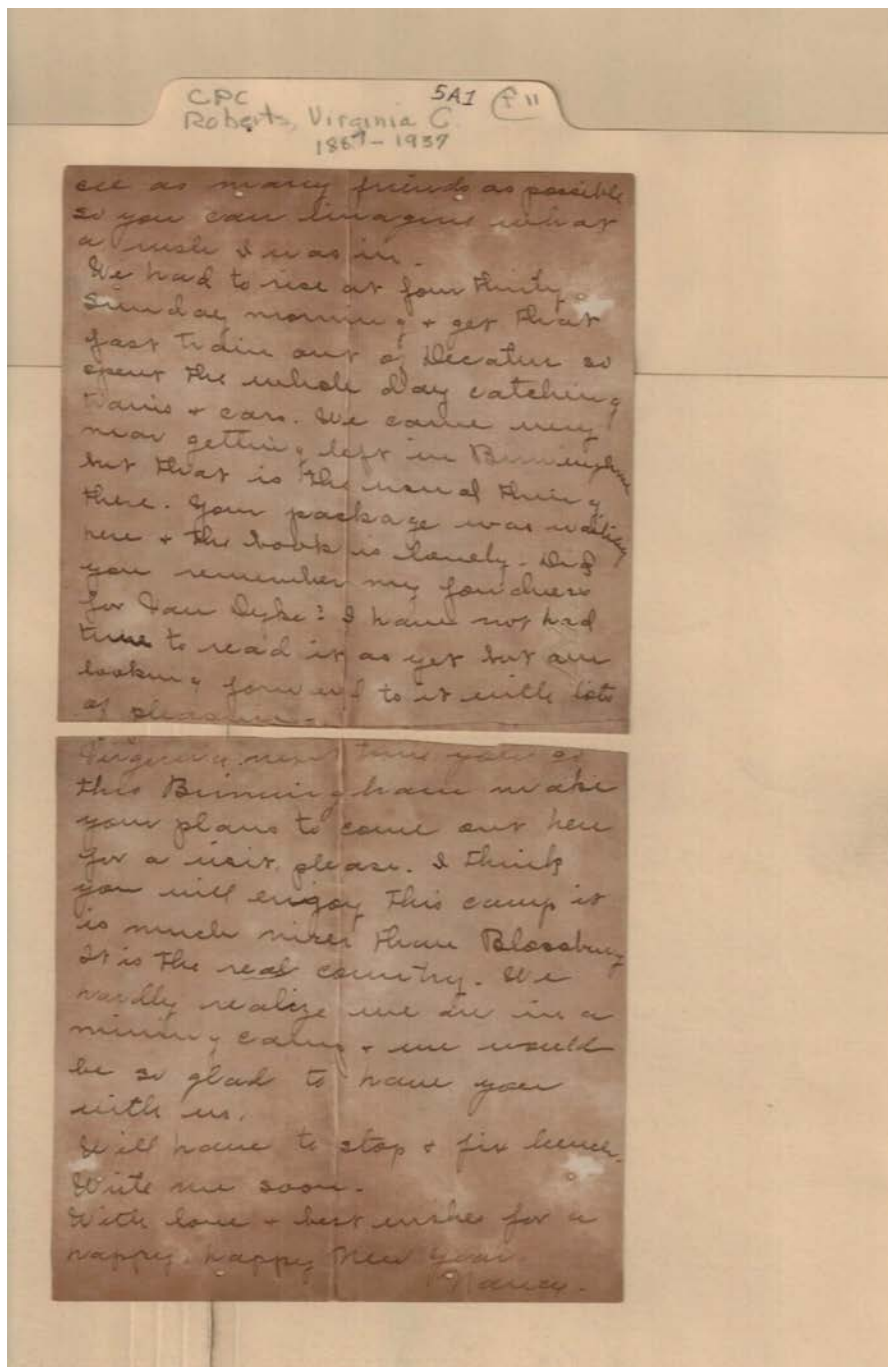 CPC 5A1 "F"
Roberts, Virginia C.
1867-1937
see as many friends as possible
so you can imagine what
a rush I was in.
We had to rise at four thirty
Sunday morning & get that
fast train out of Decatur so
spent the whole day catching
trains & cars. We came very
near getting left in Birmingham
but that is the usual thing
there. Your package was waiting
here & the book is lovely. Did
you remember my fondness
for Van Dyke? I have not had
time to read it as yet but am
looking forward to it with lots
of pleasure.
Virginia next time you go
this Birmingham make
your plans to come out here
for a visit, please. I think
you will enjoy this camp it
is much nicer than Blossburg
It is the real country. We
hardly realize we are in a
mining camp & we would
be so glad to have you
with us.
Will have to stop & fix lunch.
Write me soon.
With love & best wishes for a
happy, happy New Year.
Nancy.